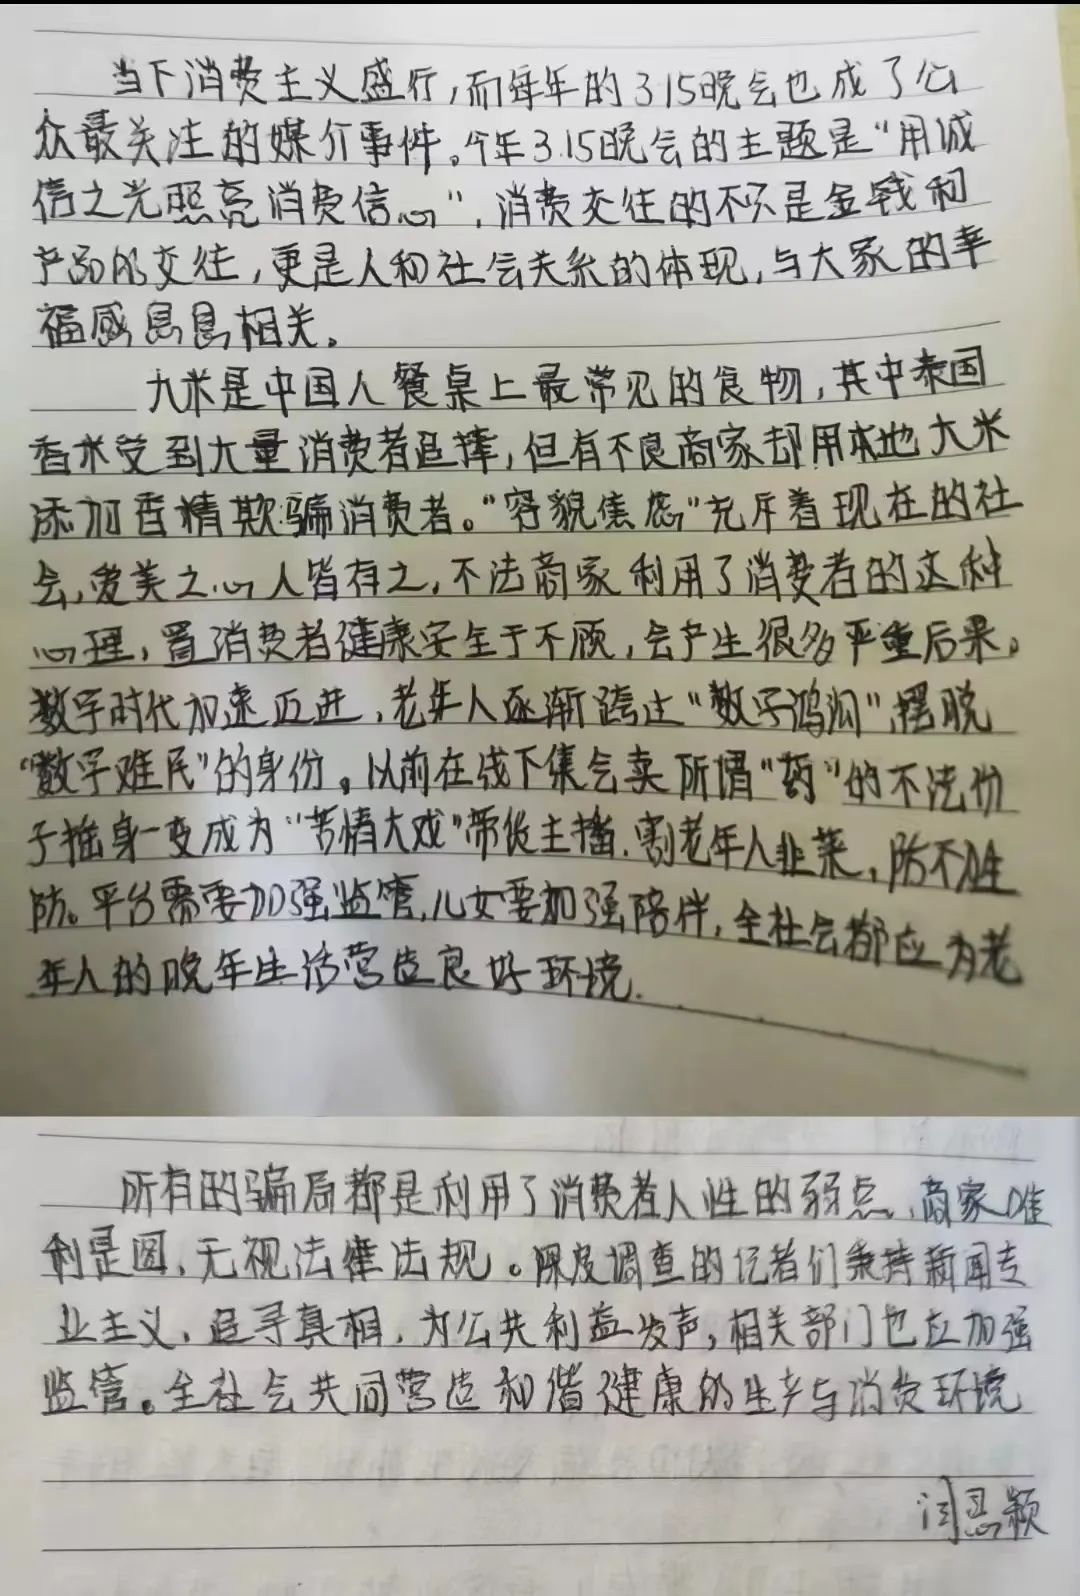 当下消费主义盛行,而每年的3.15晚会也成了公
众最关注的媒介事件。今年3.15晚会的主题是“用诚
信之光照亮消费信心”,消费交往的不只是金钱和
产品的交往,更是人和社会关系的体现,与大家的幸
福感息息相关。
大米是中国人餐桌上最常见的食物,其中泰国
香米受到大量消费者追捧,但有不良商家却用本地大米
添加香精欺骗消费者。“容貌焦虑”充斥着现在的社
会,爱美之心人皆有之,不法商家利用了消费者的这种
心理,置消费者健康安全于不顾,会产生很多严重后果。
数字时代加速迈进,老年人逐渐跨过“数字鸿沟”,摆脱
“数字难民”的身份。以前在线下集会卖所谓“药”的不法份
子摇身一变成为“苦情大戏”带货主播,割老年人韭菜,防不胜
防。平台需要加强监管,儿女要加强陪伴,全社会都应为老
年人的晚年生活营造良好环境.
所有的骗局都是利用了消费者人性的弱点,商家唯
利是图,无视法律法规。深度调查的记者们秉持新闻专
业主义,追寻真相,为公共利益发声,相关部门也应加强
监管。全社会共同营造和谐健康的生产与消费环境
闫思颖